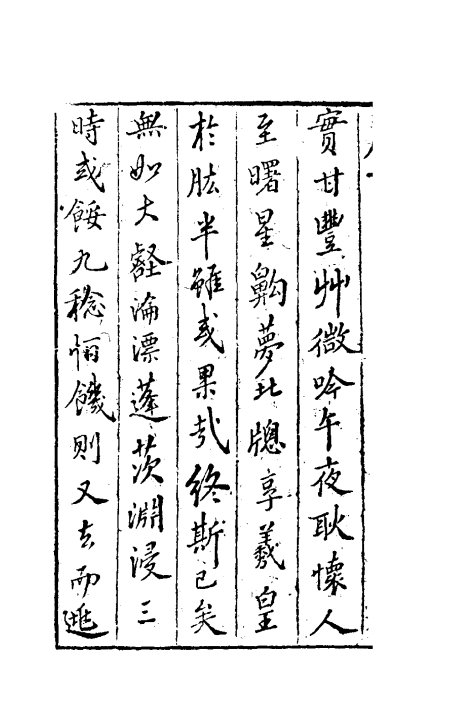 實甘豐艸微吟午夜耿懷人
至曙星齁夢北牕享羲皇
於肱半雖或果哉終斯已矣
無如大壑淪漂蓬茨淵浸三
時或餒九稔恒饑則又去而遯